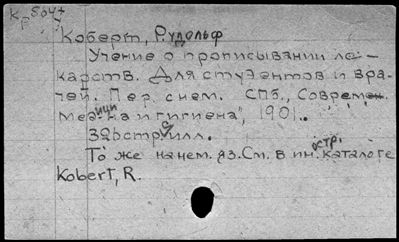 К р 804+
Коберт, Рудольф
Учение о прописывании ле-
карств. Для студентов и вра-
чей. Пер. с нем. СПб., "Соврем.
медицина и гигиена", 1901.
328 с.
То же на нем. яз. См. в иностр. каталоге
Kobert, R.